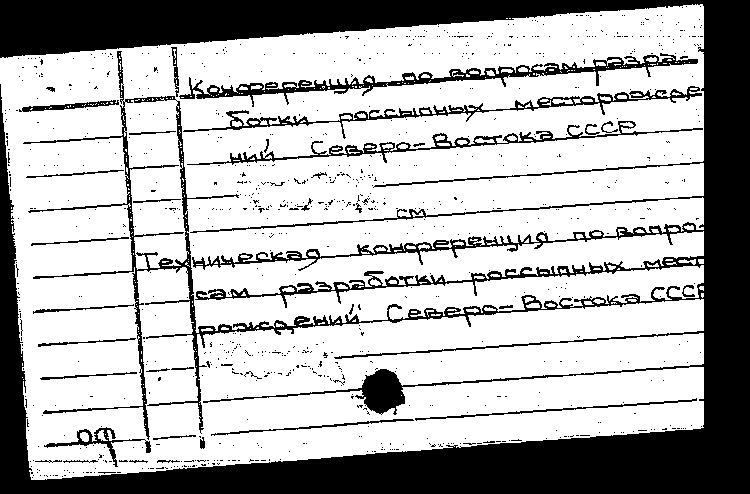 Конференция по вопросам разра-
ботки россыпных месторожде-
ний Северо-Востока СССР
см
Техническая конференция по вопро-
сам разработки россыпных мест
рождений Северо-Востока СССР
оф